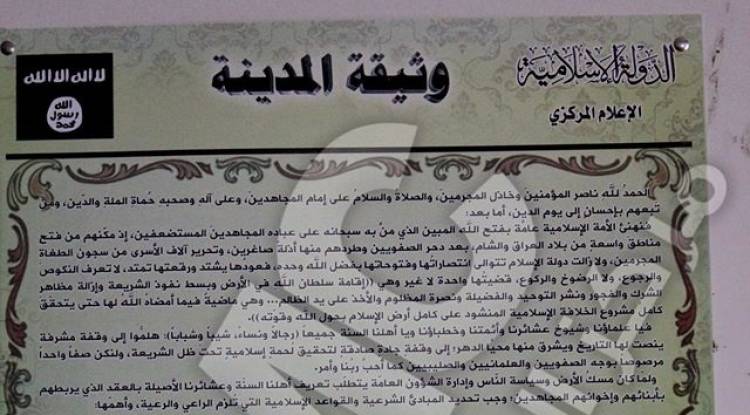 الدولة الإسلامية
الإعلام المركزي
وثيقة المدينة
لا اله الا الله
الله
رسول
محمد
الحمدُ للَّه ناصر المؤمنين وخاذل المجرمين، والصلاة والسلامُ على إمام المجاهدين، وعلى آله وصحبه حُماة الملة والدِّين، ومن
تبعهم بإحسان إلى يوم الدين، أما بعد:
فنهنئ الأمة الإسلامية عامة بفتح اللَّه المبين الذي منَّ به سبحانه على عباده المجاهدين المستضعفين، إذ مكَّنهم من فتح
مناطق واسعة من بلاد العراق والشام، بعد دحر الصفويين وطردهم منها أذلة صاغرين، وتحرير آلاف الأسرى من سجون الطغاة
المجرمين، ولا زالت دولة الإسلام تتوالى انتصاراتها وفتوحاتها بفضل اللَّه وحده، فعودها يشتد ورقعتها تمتد، لا تعرف النكوص
والرجوع، ولا الرضوخ والركوع، قضيتها واحدة لا غير وهي ((إقامة سلطان اللَّه في الأرض وبسط نفوذ الشريعة وإزالة مظاهر
الشرك والفجور ونشر التوحيد والفضيلة ونصرة المظلوم والأخذ على يد الظالم... وهي ماضية فيما أمضاه اللَّه لها حتى يتحقق
كامل مشروع الخلافة الإسلامية المنشود على كامل أرض الإسلام بحول اللَّه وقوته)).
فيا علماؤنا وشيوخ عشائرنا وأئمتنا وخطباؤنا ويا أهلنا السنة جميعاً (رجالاً ونساءً، شيباً وشباباً): هلمُّوا إلى وقفة مشرفة
ينصت لها التاريخ ويشرق منها محيا الدهر؛ إلى وقفة جادة صادقة لتحقيق لحمة إسلامية تحت ظل الشريعة، ولنكن صفاً واحداً
مرصوصاً بوجه الصفويين والعلمانيين والصليبيين كما أحب ربنا وأمر.
ولما كان مسك الأرض وسياسة الناس وإدارة الشؤون العامة يتطلَّب تعريف أهلنا السنَّة وعشائرنا الأصيلة بالعقد الذي يربطهم
بأبنائهم وإخوانهم المجاهدين؛ وجب تحديد المبادئ الشرعية والقواعد الإسلامية التي تلزم الراعي والرعية، وأهمها: